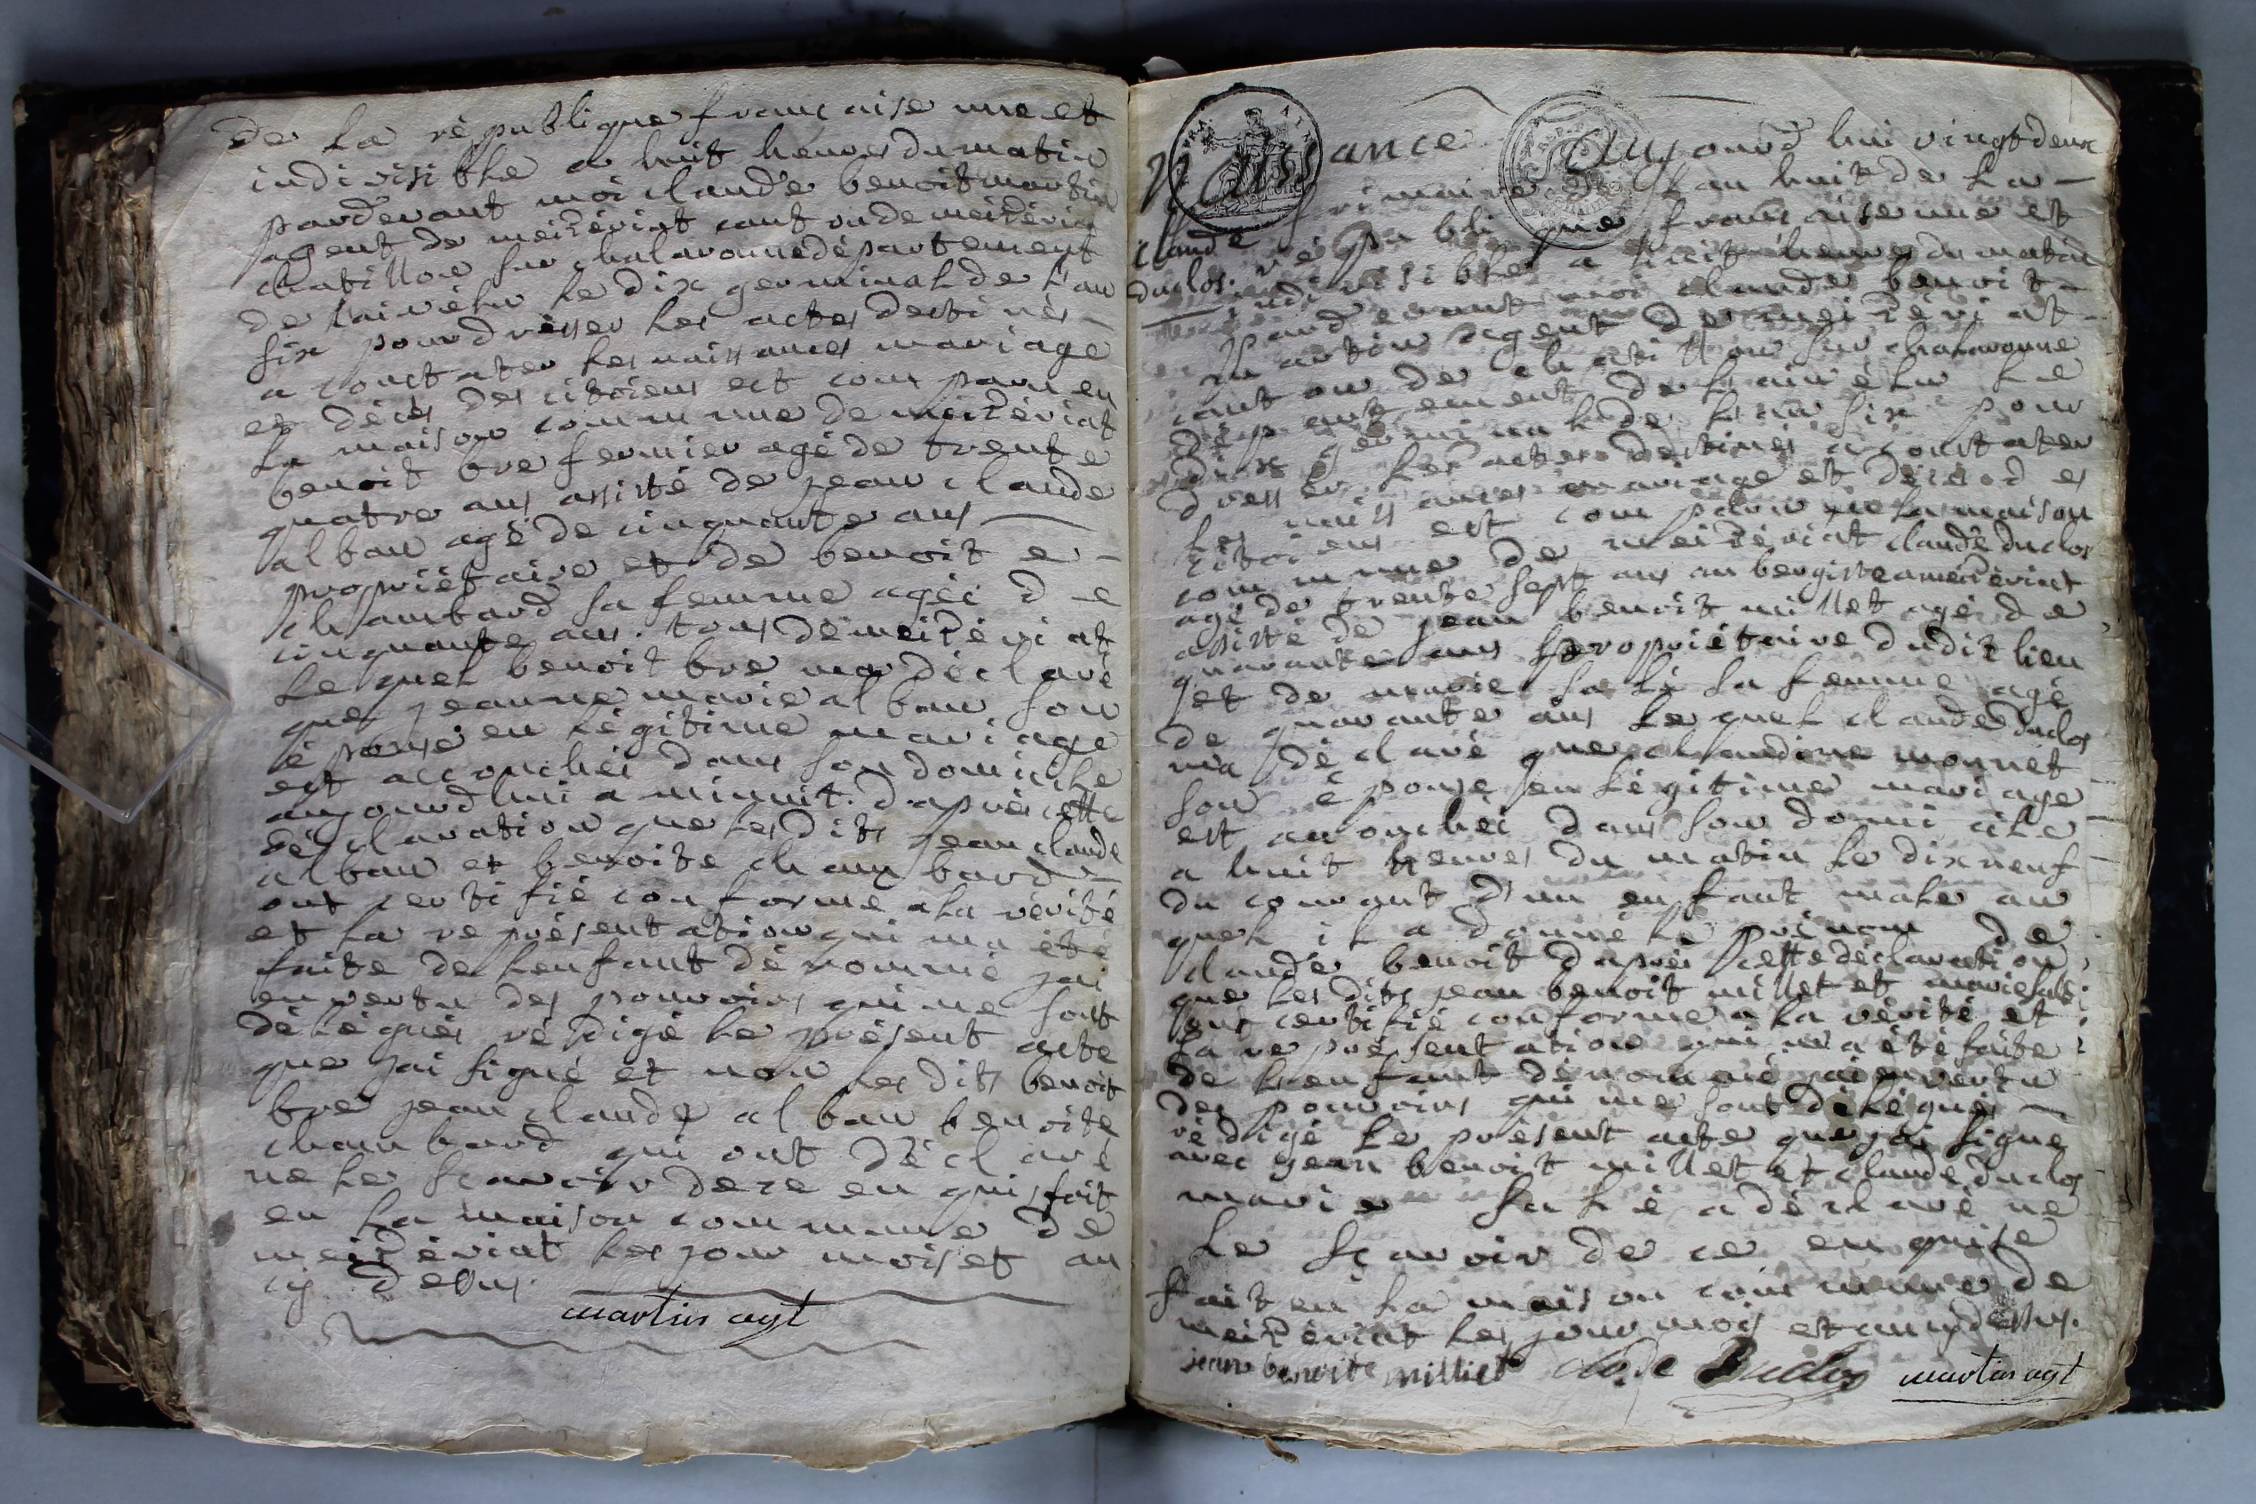 de la rèpublique francaise une et
indivisible a huit heures du matin
pardevant moi claude benoit martin
agent de meizériat cant on de meizériat
chatillon sur chalaronne département
de lain élu le dix germinal de lan
six pour dresser les actes destinés
a constater les naissances mariage
et décés des citoiens est comparu en
la maison commune de meizériat
benoit bre fermier agé de trente
quatre ans assisté de jean claude
alban agé de cinquante ans
propriétaire et de benoit e
chambard sa femme agéé d e
cinquante ans. tous démeizéri at
le quel benoit bre ma déclaré
que jeanne marie alban son
épouse en légitime mariage
est accouchéé dans son domicile
aujourdhui a minuit. d'aprés cette
déclaration que les dits jean claude
alban et benoite chambard
ont certifié conforme a la vérité
et la représentation qui ma été
faite de lenfant dénommé jai
en vertu des pouvoirs qui me sont
délégués rédigé le présent acte
que jai signé et non les dits benoit
bre jean claude alban benoite
chambard qui ont déclaré
ne le scavoir de ce enquis fait
en la maison commune de
meizériat les jour mois et an
cy dessus.
martin agt
Naissance Aujourd hui vingt deux
frimaire de lan huit de la
claude république francaise une et
duclos. indivisible a huit heures du matin
pardevant moi claude benoit
martin agent de meizéri at
cant on de chatillon sur chalaronne
département de lain élu le
dix germinal de lan six pour
dresser les actes destinés a constater
les naissances mariage et décés d es
citoiens est comparu en la maison
commune de meizériat claude duclos
agé de trente sept ans aubergiste a meizériat
assisté de jean benoit millet agé de
quarante ans propriétaire dudit lieu
et de marie sa lé sa femme agé
de quarante ans le quel claude duclos
ma déclaré que claudine monnet
son épouse en légitime mariage
est accouchéé dans son domi cile
a huit heures du matin le dix neuf
du courant d'un enfant male au
quel il a donné le prénom de
claude benoit daprés cette déclaration
que les dits jean benoit millet et marie salé
ont certifié conforme a la vérité et
la représentation qui ma été faite
de lenfant dénommé jai en vertu
des pouvoirs qui me sont délégués
rédigé le présent acte que jai signe
avec jean benoit millet et claude duclos
marie sa lé a déclaré ne
le scavoir de ce enquise
fait en la maison commune de
meizériat les jour mois et an cy dessus.
jean benoit milliet Duclos martin agt